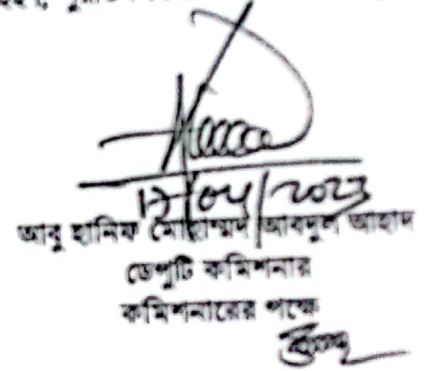 17/04/2023
আবু হানিফ মোহাম্মদ আবদুল আহাদ
ডেপুটি কমিশনার
কমিশনারের পক্ষে